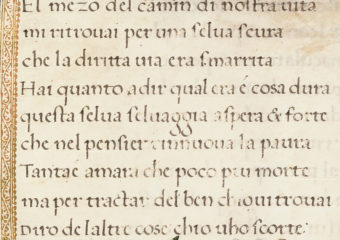 El mezo del camin di nostra uita
mi ritrouai per una selua scura
che la diritta uia era smarrita
Hai quanto adir qual era é cosa dura
questa selua seluaggia aspera & forte
che nel pensier rinnoua la paura
Tantaé amara che poco piu morte
ma per tractar del ben chiqui trouai
Diro delaltre cose chio uho scorte